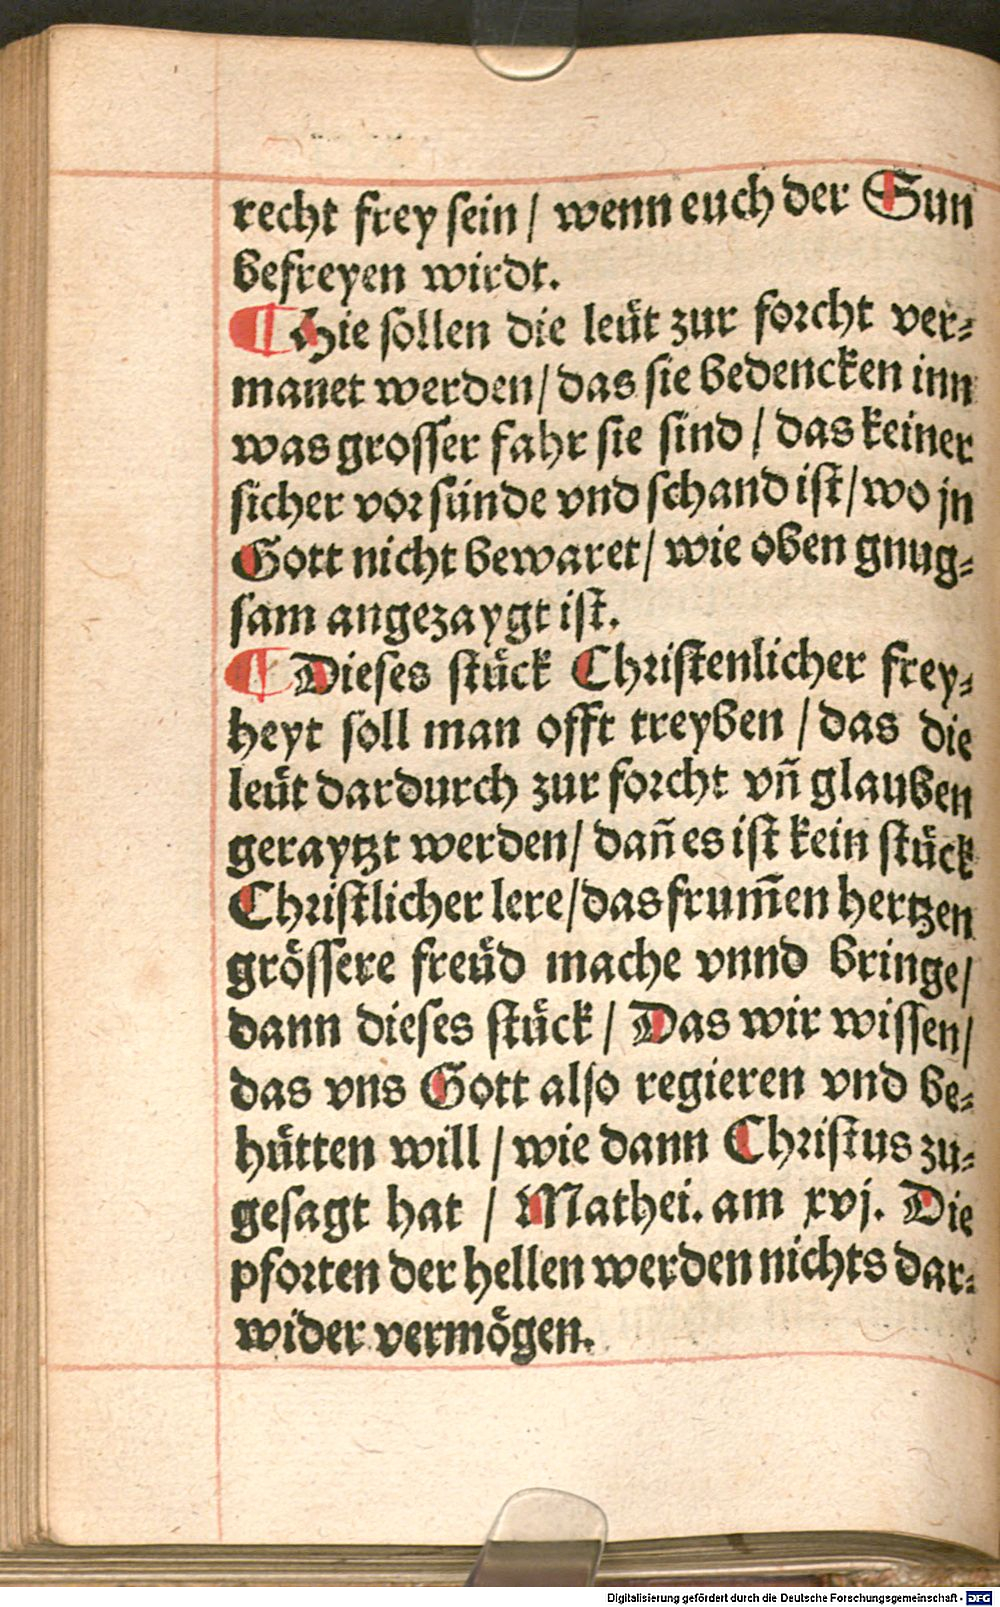 recht frey sein / wenn euch der Sun
befreyen wirdt.
¶ Hie sollen die leüt zur forcht ver⸗
manet werden / das sie bedencken inn
was grosser fahr sie sind / das keiner
sicher vor sünde vnd schand ist / wo jn
Gott nicht bewaret / wie oben gnug⸗
sam angezaygt ist.
¶ Dieses stuͤck Christenlicher frey⸗
heyt soll man offt treyben / das die
leüt dardurch zur forcht vñ glauben
geraytzt werden / dañ es ist kein stuͤck
Christlicher lere / das frum̃en hertzen
groͤssere freüd mache vnnd bringe /
dann dieses stuͤck / Das wir wissen /
das vns Gott also regieren vnd be⸗
huͤtten will / wie dann Christus zu⸗
gesagt hat / Mathei. am xvj. Die
pforten der hellen werden nichts dar⸗
wider vermoͤgen.
Digitalisierung gefördert durch die Deutsche Forschungsgemeinschaft - DFG